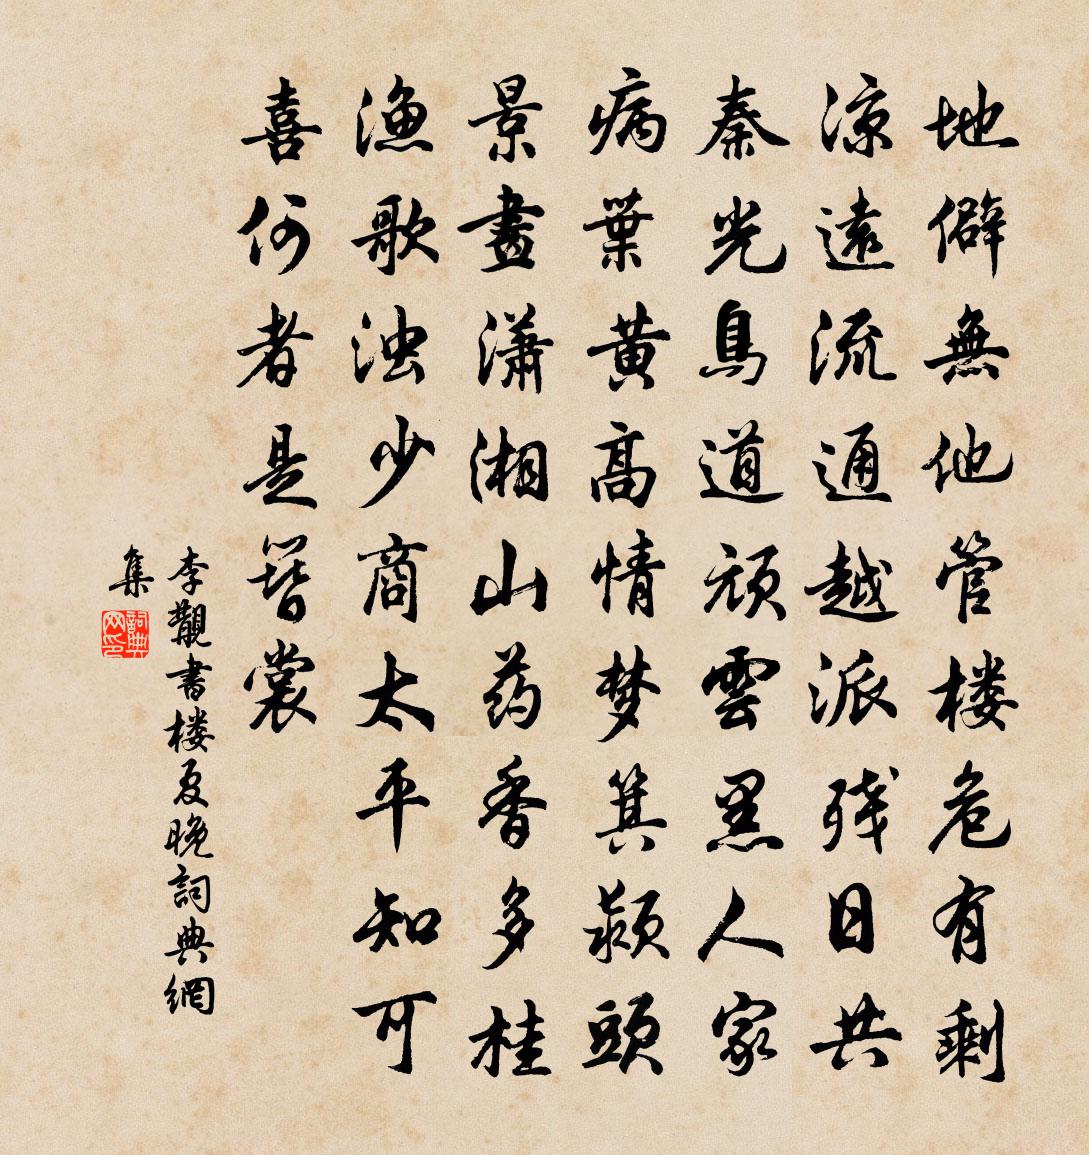 地僻無他管楼危有剩
涼遠流通越派残日共
秦光鳥道頑雲黑人家
病葉黄高情梦箕潁頭
景畫瀟湘山药香多桂
漁歌浊少商太平知可
喜何者是簪裳
李覯書楼夏晚詞典網
集
詞典
网印